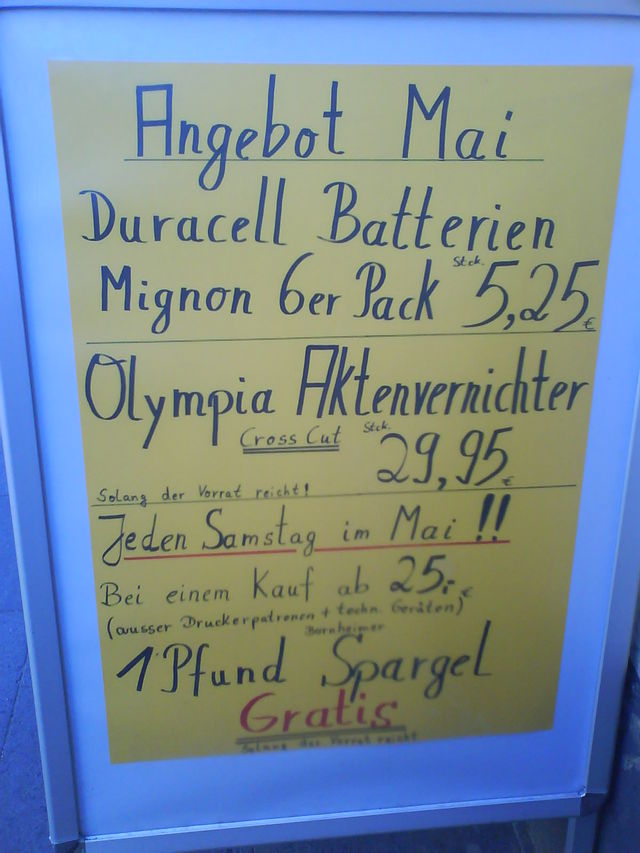 Angebot Mai
Duracell Batterien
Mignon 6er Pack Stck. 5,25 €
Olympia Aktenvernichter
Cross Cut Stck. 29,95 €
Solang der Vorrat reicht!
Jeden Samstag im Mai !!
Bei einem Kauf ab 25,- €
(ausser Druckerpatronen + techn. Geräten)
Bornheimer
1 Pfund Spargel
Gratis
Solang der Vorrat reicht